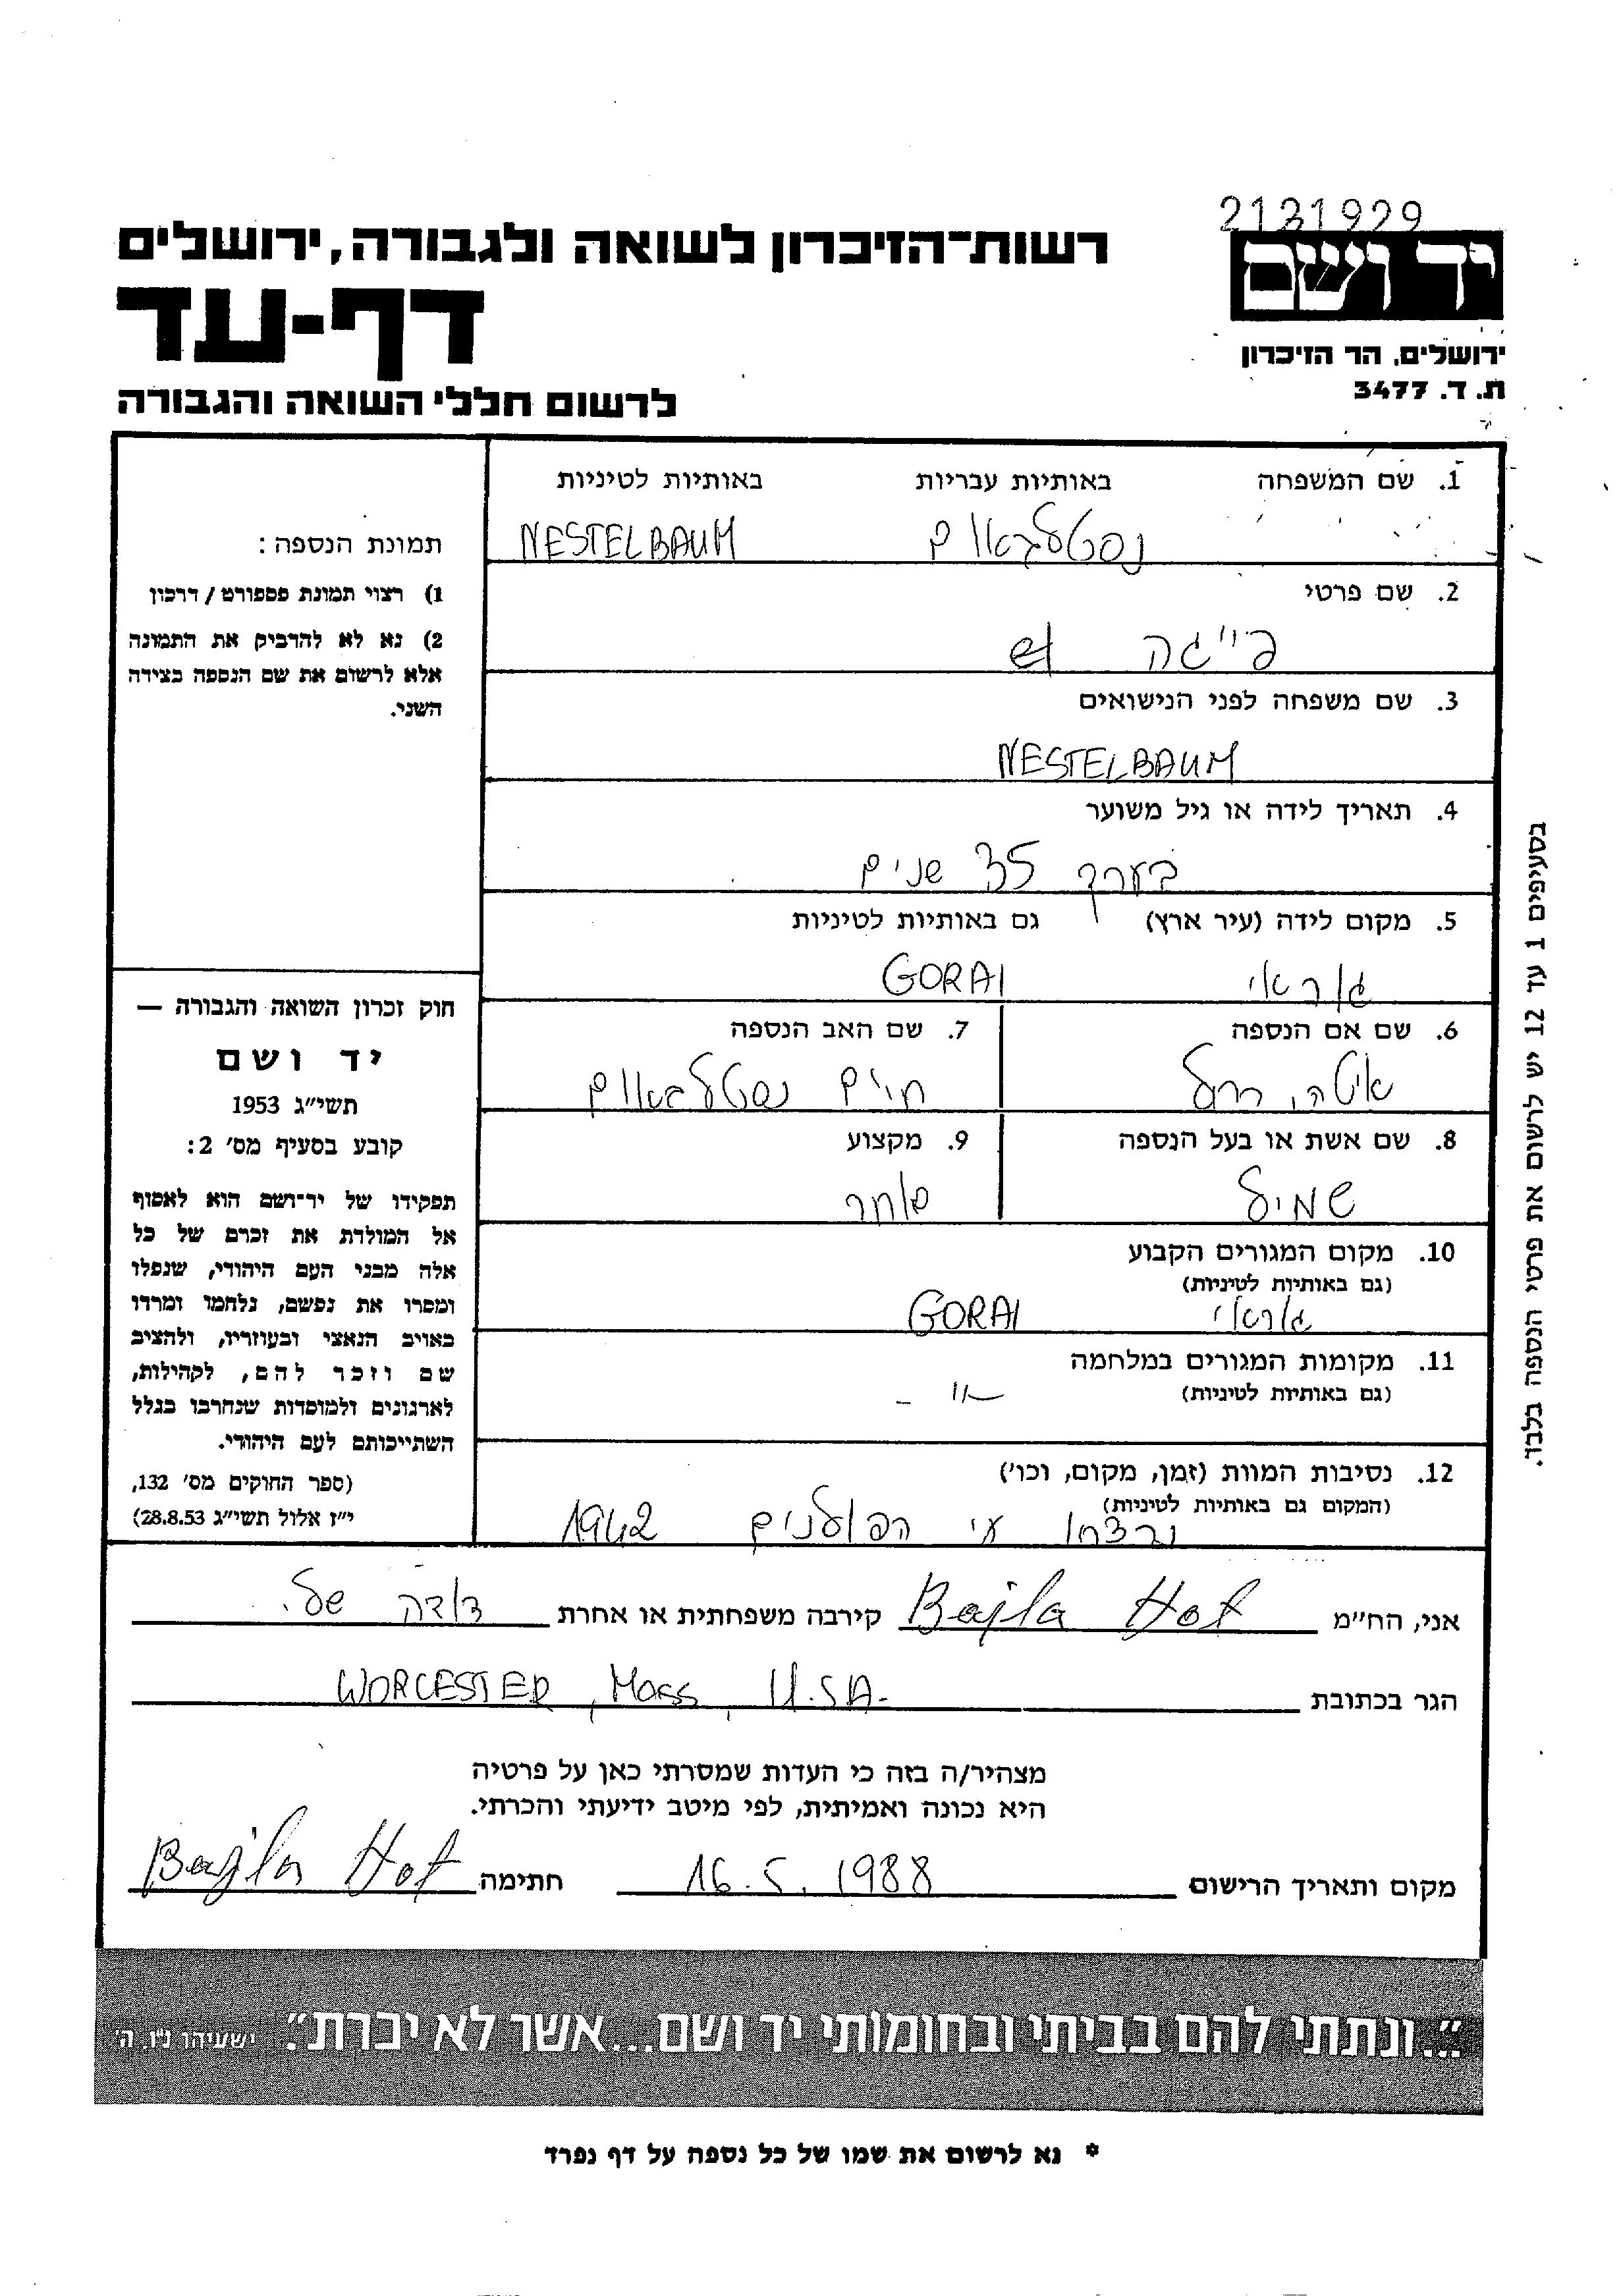 2131929
יד ושם
ירושלים, הר הזיכרון
ת. ד. 3477
רשות-הזיכרון לשואה ולגבורה, ירושלים
דף-עד
לרשום חללי השואה והגבורה
1. שם המשפחה באותיות עבריות באותיות לטיניות
נסטלבאום NESTELBAUM
2. שם פרטי
פייגה
3. שם משפחה לפני הנישואים
NESTELBAUM
4. תאריך לידה או גיל משוער
בערך 35 שנים
5. מקום לידה (עיר ארץ) גם באותיות לטיניות
גוראי GORAI
6. שם אם הנספה
איטה, רחל
7. שם האב הנספה
חיים נסטלבאום
8. שם אשת או בעל הנספה
שמיל
9. מקצוע
סוחר
10. מקום המגורים הקבוע
(גם באותיות לטיניות)
גוראי GORAI
11. מקומות המגורים במלחמה
(גם באותיות לטיניות)
- " -
12. נסיבות המוות (זמן, מקום, וכו')
(המקום גם באותיות לטיניות)
נרצחו ע"י הפולנים 1942
תמונת הנספה:
1) רצוי תמונת פספורט / דרכון
2) נא לא להדביק את התמונה
אלא לרשום את שם הנספה בצידה
השני.
חוק זכרון השואה והגבורה —
יד ושם
תשי״ג 1953
קובע בסעיף מס׳ 2:
תפקידו של יד־ושם הוא לאסוף
אל המולדת את זכרם של כל
אלה מבני העם היהודי, שנפלו
ומסרו את נפשם, נלחמו ומרדו
באויב הנאצי ובעוזריו, ולהציב
שם וזכר להם, לקהילות,
לארגונים ולמוסדות שנחרבו בגלל
השתייכותם לעם היהודי.
(ספר החוקים מס׳ 132,
י״ז אלול תשי״ג 28.8.53)
בסעיפים 1 עד 12 יש לרשום את פרטי הנספה בלבד.
אני, הח״מ Bajla Hof קירבה משפחתית או אחרת דודה שלי
הגר בכתובת WORCESTER, Mass, U.S.A.
מצהיר/ה בזה כי העדות שמסרתי כאן על פרטיה
היא נכונה ואמיתית, לפי מיטב ידיעתי והכרתי.
מקום ותאריך הרישום 16.5.1988 חתימה Bajla Hof
"...ונתתי להם בביתי ובחומותי יד ושם...אשר לא יכרת". ישעיהו נ״ו. ה׳
* נא לרשום את שמו של כל נספה על דף נפרד